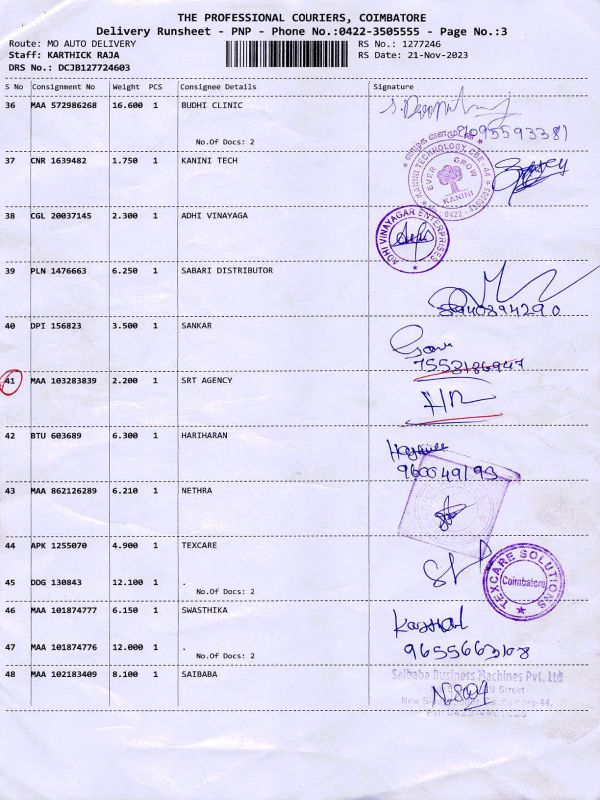 THE PROFESSIONAL COURIERS, COIMBATORE
Delivery Runsheet - PNP - Phone No.:0422-3505555 - Page No.:3
Route: MO AUTO DELIVERY RS No.: 1277246
Staff: KARTHICK RAJA RS Date: 21-Nov-2023
DRS No.: DCJB127724603
S No Consignment No Weight PCS Consignee Details Signature
36 MAA 572986268 16.600 1 BUDHI CLINIC
No.Of Docs: 2
வாழ்க வளமுடன்
37 CNR 1639482 1.750 1 KANINI TECH
KANINI TECHNOLOGY, CBE-44
EVER GROW
KANINI
38 CGL 20037145 2.300 1 ADHI VINAYAGA
ADHI VINAYAGAR ENTERPRISES
39 PLN 1476663 6.250 1 SABARI DISTRIBUTOR
8940894290
40 DPI 156823 3.500 1 SANKAR
41 MAA 103283839 2.200 1 SRT AGENCY
42 BTU 603689 6.300 1 HARIHARAN
43 MAA 862126289 6.210 1 NETHRA
44 APK 1255070 4.900 1 TEXCARE
TEXCARE SOLUTIONS
Coimbatore
45 DDG 130843 12.100 1 .
No.Of Docs: 2
46 MAA 101874777 6.150 1 SWASTHIKA
47 MAA 101874776 12.000 1 .
No.Of Docs: 2
48 MAA 102183409 8.100 1 SAIBABA
Saibaba Business Machines Pvt. Ltd
Street